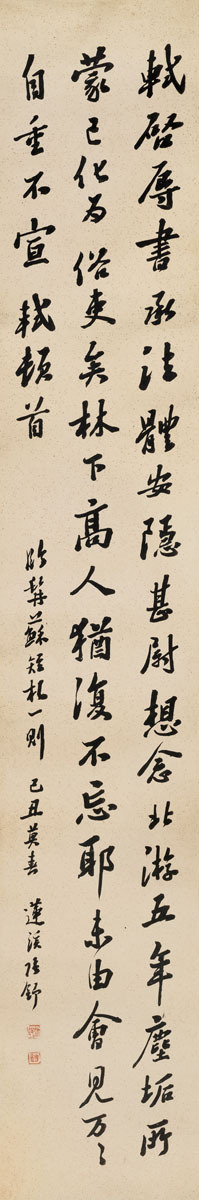 軾啓辱書承法體安隱甚尉想念北游五年塵垢所
蒙已化為俗吏矣林下高人猶復不忘耶未由會見万〻
自重不宣軾頓首
臨髯蘇短札一則
己丑莫春
蓮溪張舒